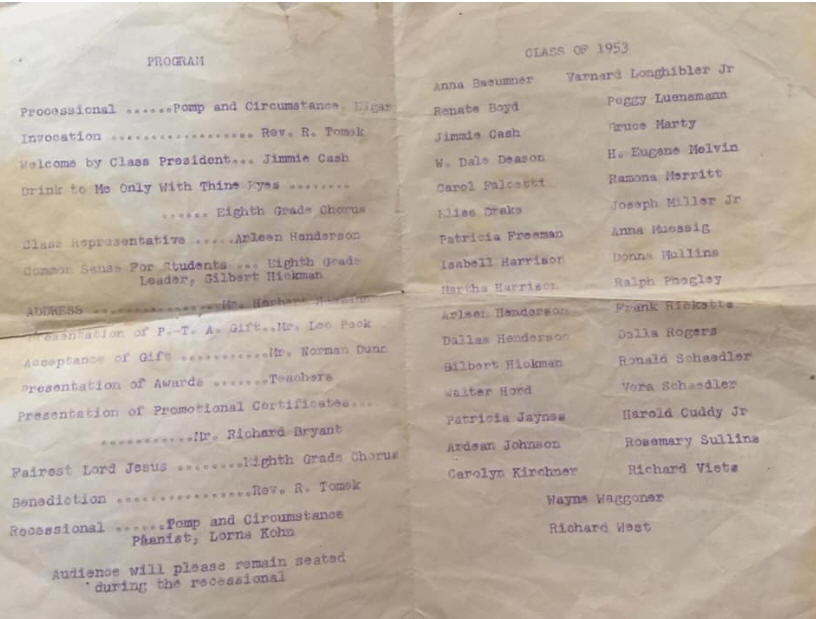 PROGRAM
Processional ......Pomp and Circumstance, Elgar
Invocation ................... Rev. R. Tomek
Welcome by Class President... Jimmie Cash
Drink to Me Only With Thine Eyes ........
...... Eighth Grade Chorus
Class Representative .....Arleen Henderson
Common Sense For Students ... Eighth Grade
Leader, Gilbert Hickman
ADDRESS .................Mr. Herbert
Presentation of P.-T. A. Gift..Mr. Leo Peck
Acceptance of Gift ............Mr. Norman Dunn
Presentation of Awards ........Teachers
Presentation of Promotional Certificates...
............Mr. Richard Bryant
Fairest Lord Jesus ........Eighth Grade Chorus
Benediction .................Rev. R. Tomek
Recessional ......Pomp and Circumstance
Pianist, Lorna Kohn
Audience will please remain seated
during the recessional
CLASS OF 1953
Anna Baeumner Varnard Longhibler Jr
Renate Boyd Peggy Luenemann
Jimmie Cash Bruce Marty
W. Dale Deason H. Eugene Melvin
Carol Falcetti Ramona Merritt
Elise Drake Joseph Miller Jr
Patricia Freeman Anna Muessig
Isabell Harrison Donna Mullins
Martha Harrison Ralph Phegley
Arleen Henderson Frank Ricketts
Dallas Henderson Della Rogers
Gilbert Hickman Ronald Schaedler
Walter Hord Vera Schaedler
Patricia Jaynes Harold Cuddy Jr
Ardean Johnson Rosemary Sullins
Carolyn Kirchner Richard Viets
Wayne Waggoner
Richard West